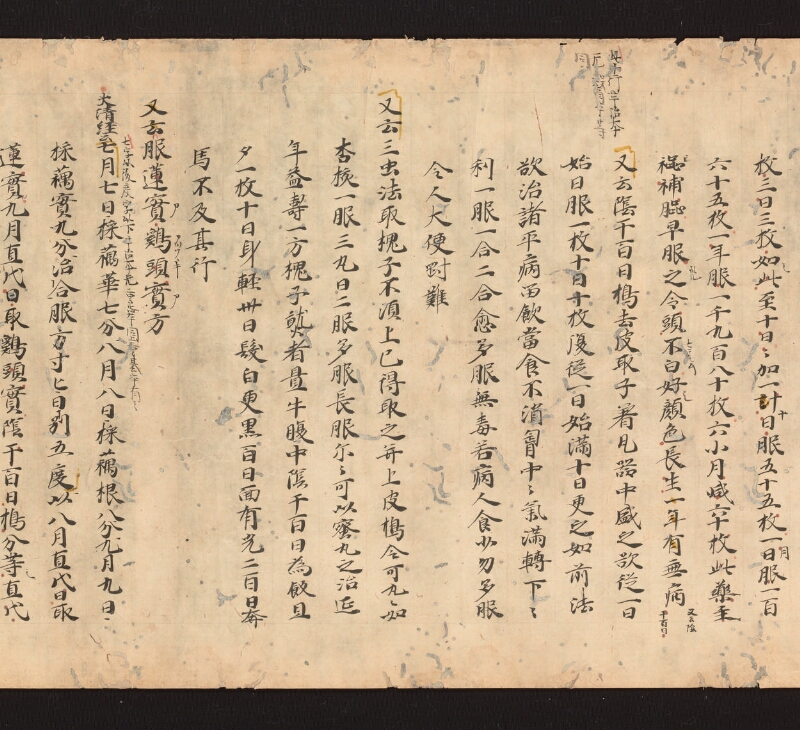 枚三日三枚如此至十日〻加一計日服五十五枚一日服一百
六十五枚一年服一千九百八十枚六小月減六十枚此藥至
神補腦早服之令頭不白好顏色長生一年有無病
又云陰干百日擣去皮取子著凡器中盛之欲從一日
始日服一枚十日十枚復從一日始滿十日更之如前法
欲治諸平病留飲當食不消胷中〻氣滿轉下〻
利一服一合二合愈多服無毒若病人食少勿多服
令人大便難
又云三虫法取槐子不湏上巳得取之并上皮擣令可丸〻如
杏核一服三丸日二服多服長服尔〻可以蜜丸之治近
年益壽一方槐子熟者置牛腹中陰干百日為飯且
夕一枚十日身輕卅日髮白更黑百日面有光二百日奔
馬不及其行
又云服蓮實鷄頭實方
大清経云七月七日採藕華七分八月八日採藕根八分九月九日
採藕實九分治合服方寸匕日別五度以八月直代日取
蓮實九月直代日取鷄頭實陰干百日擣分等直代